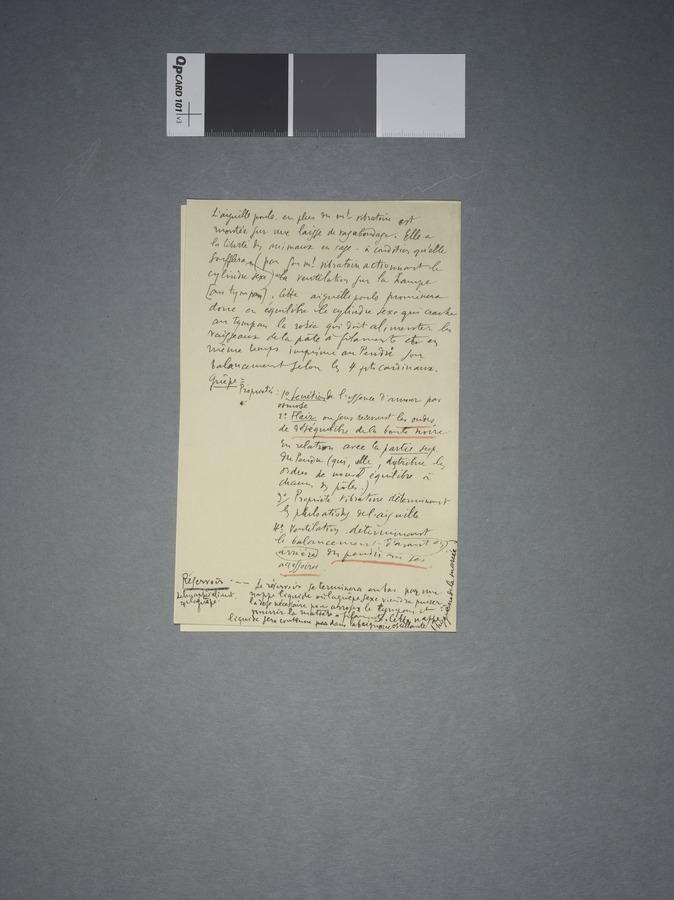 QPCARD 101 v3
L'aiguille pouls. en plus du mt vibratoire est
montée sur une laisse de vagabondage. Elle a
la liberté des animaux en cage – à condition qu'elle
soufflera (par son mt vibratoire actionnant le
cylindre sexe) la ventilation sur la hampe
(au tympan). Cette aiguille pouls promènera
donc en équilibre le cylindre sexe qui crache
au tympan la rosée qui doit alimenter les
vaisseaux de la pâte à filaments et en
même temps imprime au Pendu son
balancement selon les 4 pts cardinaux.
Guêpe =
Propriétés : 1° Sécrétion de l'essence d'amour par
osmose
2° Flair ou sens recevant les ondes
de déséquilibre de la boule noire
En relation avec la partie sup.
du Pendu (qui, elle, distribue les
ordres de nouvel équilibre à
chacun des pôles.)
3° Propriété vibratoire déterminant
les pulsations de l'aiguille
4° Ventilation déterminant
le balancement d'avant en
arrière du pendu et ses
accessoires
Réservoir --- Le réservoir se terminera en bas par une
nappe liquide où la guêpe sexe viendra puiser
la dose nécessaire pour arroser le tympan et
nourrir la matière à filaments. Cette nappe
liquide sera contenue dans la baignoire oscillante (hygiène de la mariée)